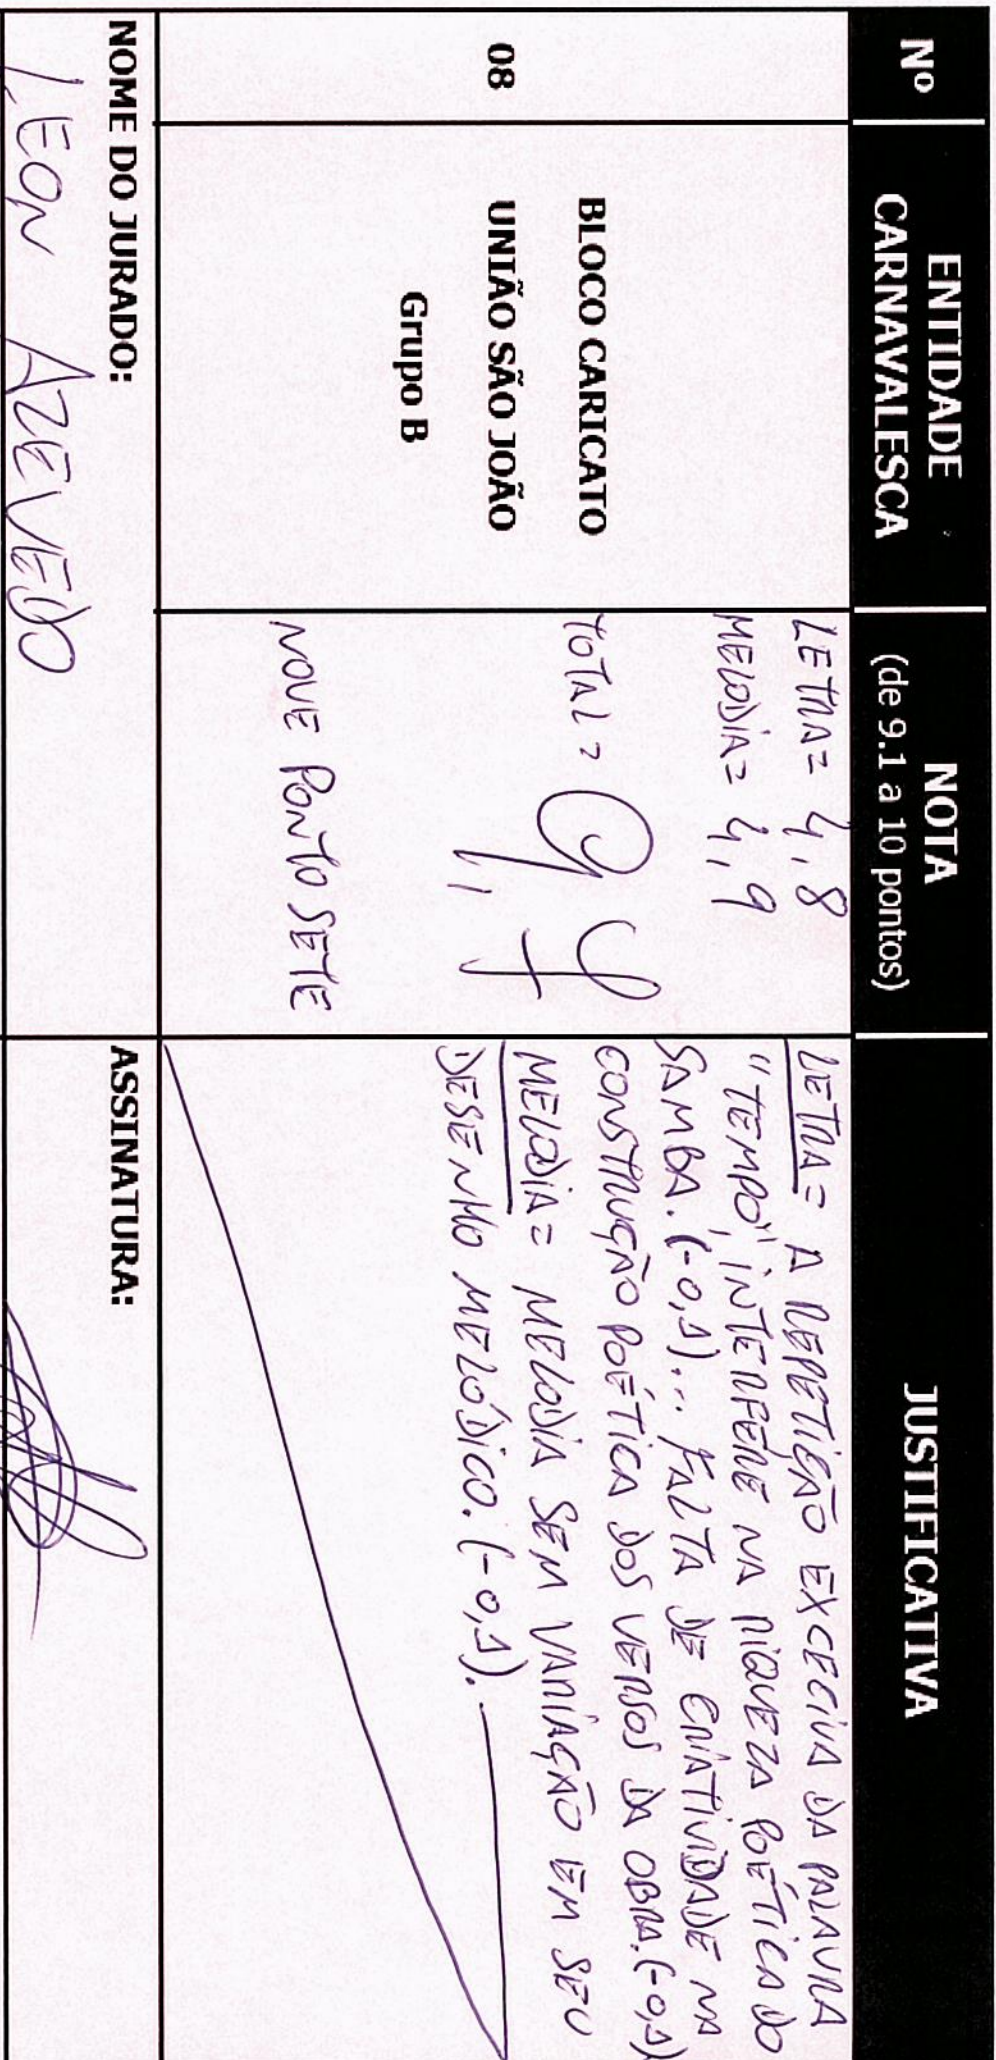 Nº
ENTIDADE
CARNAVALESCA
NOTA
(de 9.1 a 10 pontos)
JUSTIFICATIVA
08
BLOCO CARICATO
UNIÃO SÃO JOÃO
Grupo B
LETRA= 4,8
MELODIA= 4,9
TOTAL= 9,7
NOVE PONTO SETE
LETRA= A REPETIÇÃO EXCECIVA DA PALAVRA
"TEMPO", INTERFERE NA RIQUEZA POÉTICA DO
SAMBA. (-0,1)... FALTA DE CRIATIVIDADE NA
CONSTRUÇÃO POÉTICA DOS VERSOS DA OBRA. (-0,1)
MELODIA= MELODIA SEM VARIAÇÃO EM SEU
DESENHO MELÓDICO. (-0,1).
NOME DO JURADO:
LEON AZEVEDO
ASSINATURA: